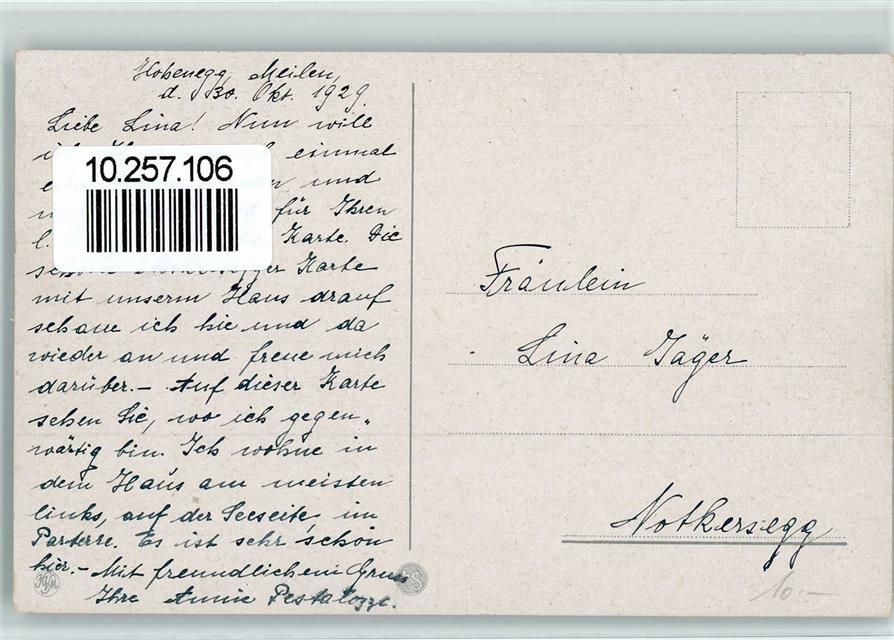 Hohenegg, Meilen,
d. 30. Okt. 1929.
Liebe Lina! Nun will
einmal
und
für Ihren
l. Karte. Die
Karte
mit unserm Haus drauf
schaue ich hie und da
wieder an und freue mich
darüber.- Auf dieser Karte
sehen Sie, wo ich gegen„
wärtig bin. Ich wohne in
dem Haus am meisten
links, auf der Seeseite, im
Parterre. Es ist sehr schön
hier.- Mit freundlichem Gruss
Ihre Annie Pestalozzi.
10.257.106
Fräulein
Lina Jäger
Notkersegg
10.-